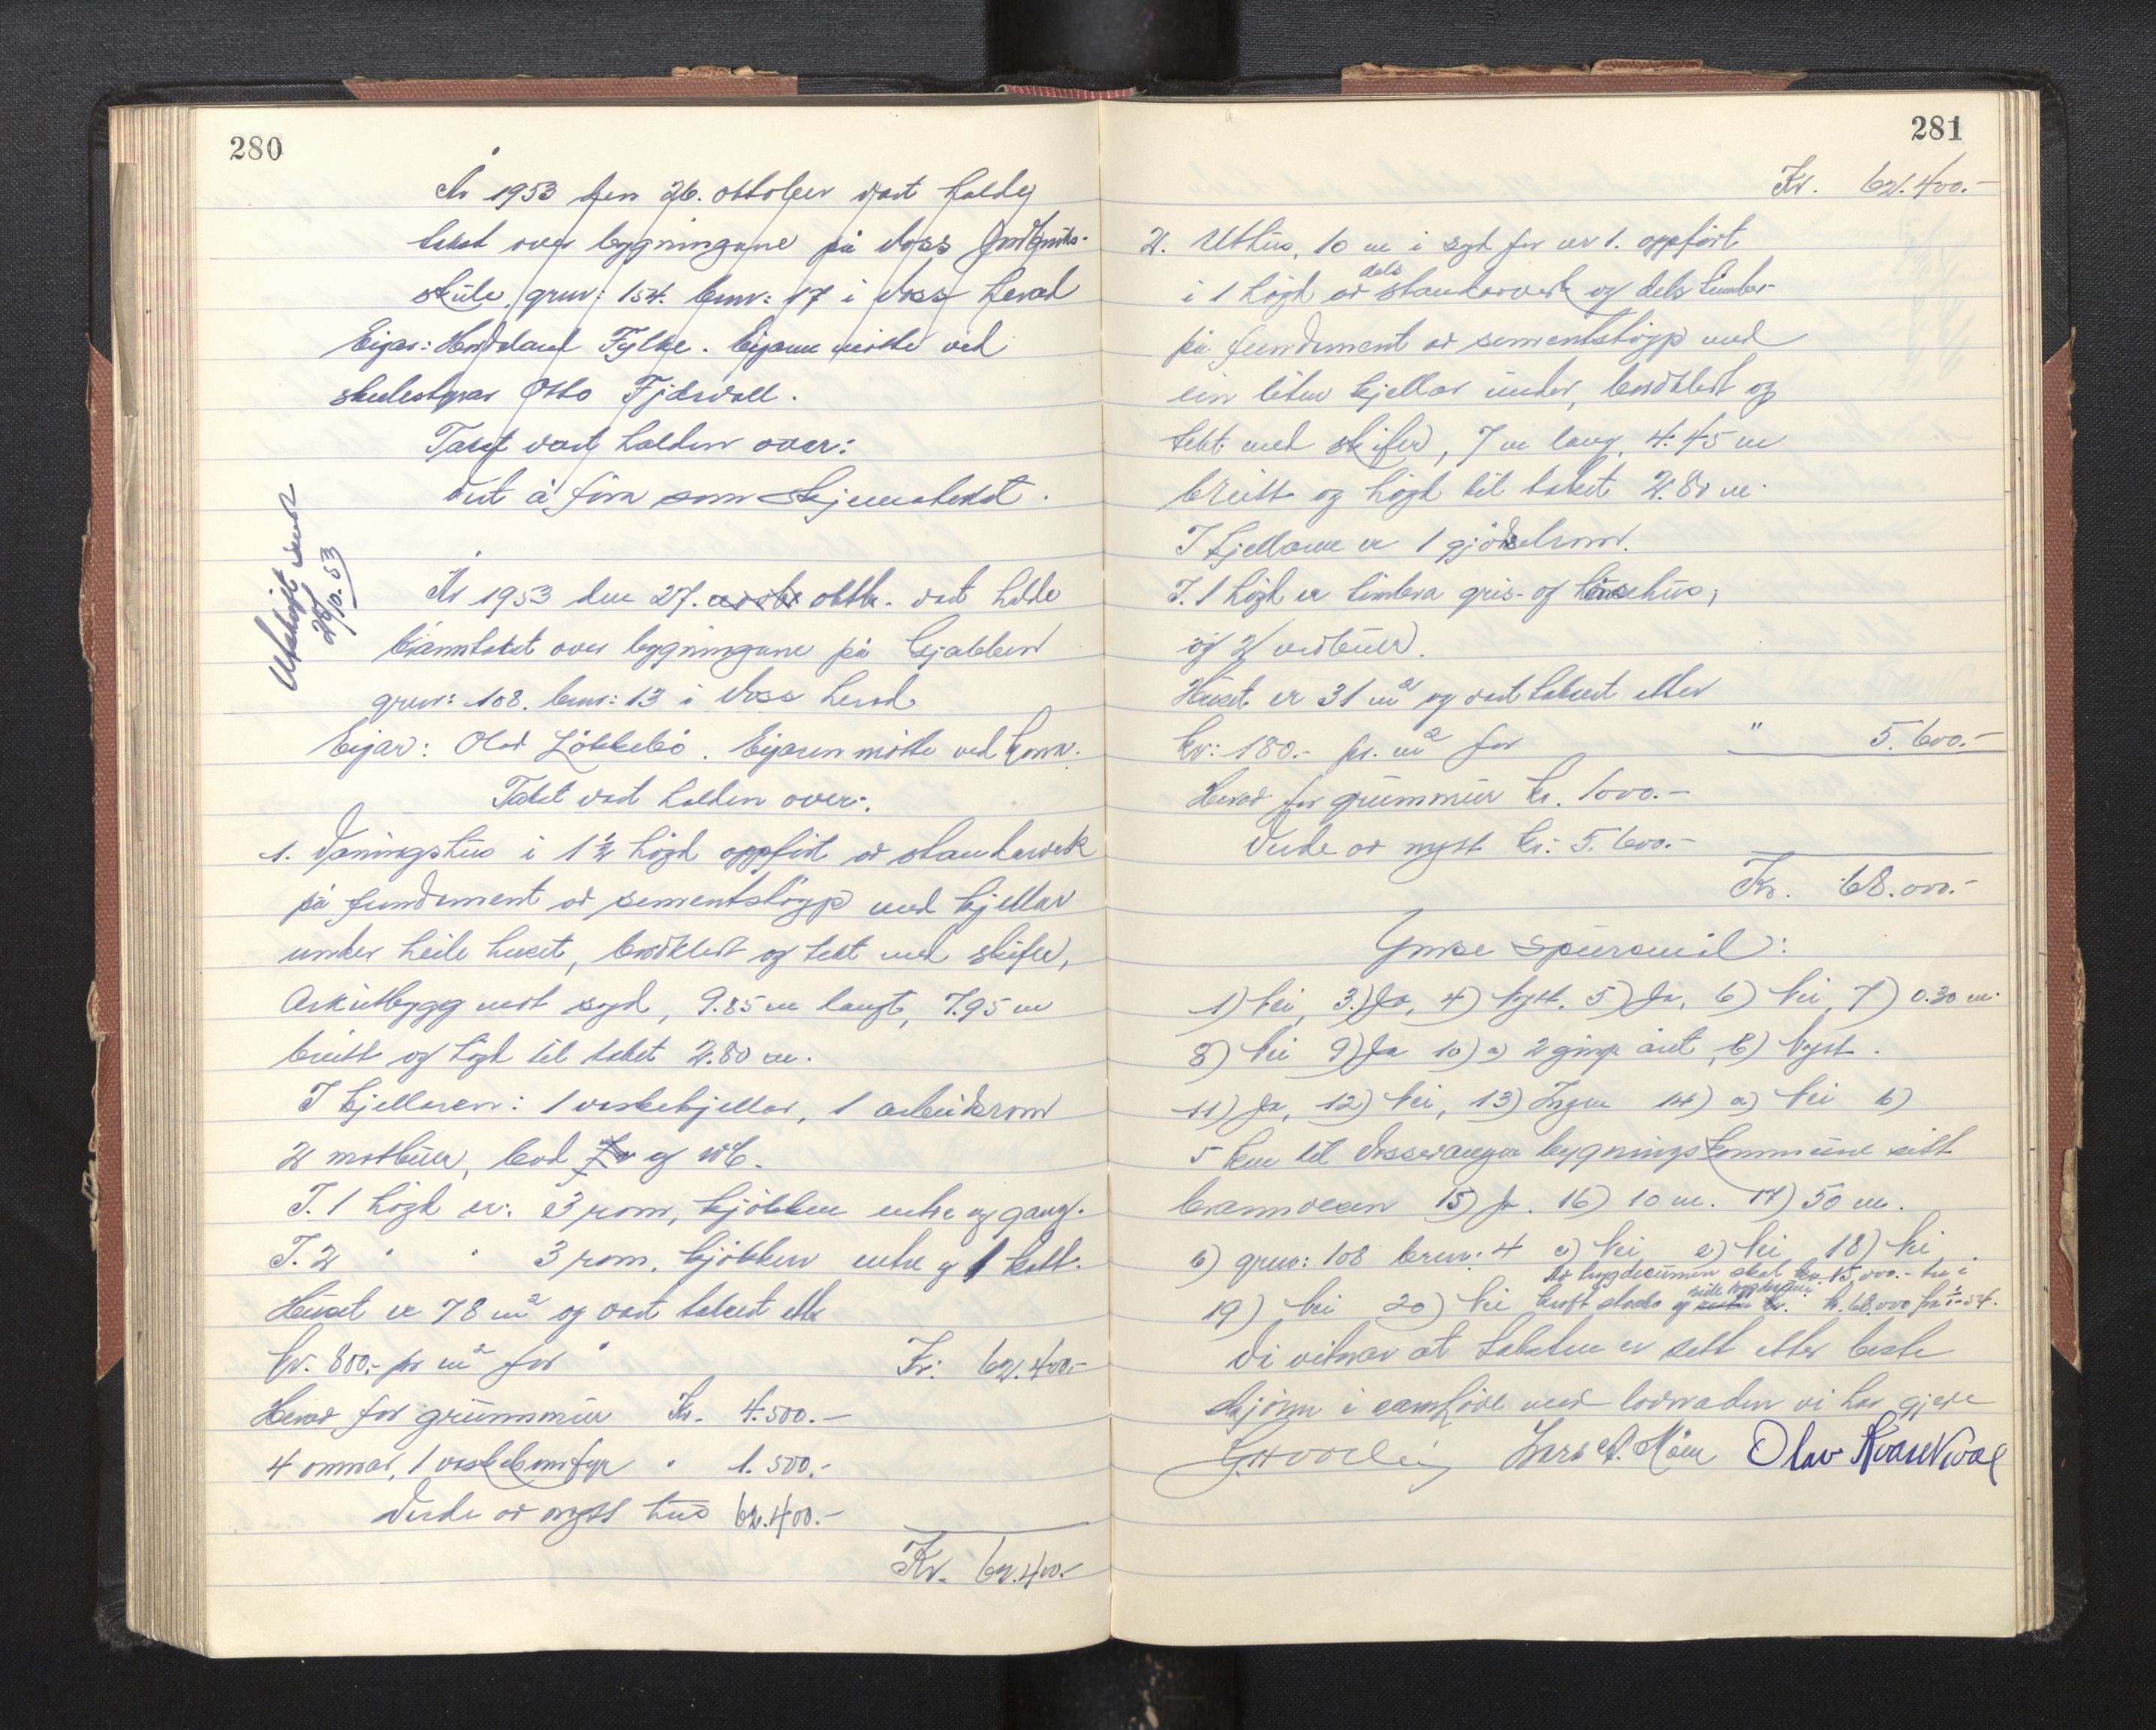 280
År 1953 den 26. oktober vart halde
takst over bygningane på Voss Jordbruks-
skule, gnr: 154. bnr: 17 i Voss herad
Eigar: Hordaland Fylke. Eigaren møtte ved
skulestyrar Otto Fjærvoll.
Takst vart halden over:
Vert å føra som skjemotakst.
Utskrift sendt
29/10.53
År 1953 den 27. oktbr. vart halde
branntakst over bygningane på Gjabben
gnr: 108. bnr: 13 i Voss herad
Eigar: Olav Løkkebø. Eigaren møtte ved kona.
Takst vart halden over:
1. Våningshus i 1 1/2 høgd oppført av standarverk
på fundament av sementstøyp med kjellar
under heile huset, bordkledt og tekt med skifer,
Arkutbygg mot syd, 9.85 m langt, 7.95 m
breitt og høgd til taket 2.80 m.
I kjellaren: 1 vaskekjellar, 1 arbeidsrom
2 matbuer, bod og WC.
I. 1 høgd er: 3 rom, kjøkken entre og gang.
I. 2 " " 3 rom, kjøkken entre og 1 kott.
Huset er 78 m2 og vart taksert etter
kr. 800,- pr m2 for Kr: 62.400.-
Herav for grunnmur Kr. 4.500.-
4 omnar, 1 vaskekomfyr " 1.500.-
Verde av nytt hus 62.400.-
Kr. 62.400.-
281
Kr. 62.400.-
2. Uthus, 10 m i syd for nr 1. oppført
i 1 høgd av dels standarverk og dels timber
på fundament av sementstøyp med
ein liten kjellar under, bordkledt og
tekt med skifer, 7 m lang, 4.45 m
breitt og høgd til taket 2.80 m.
I kjellaren er 1 gjødselrom.
I. 1 høgd er timbra gris- og hønsehus,
og 2 vedbuer.
Huset er 31 m2 og vart taksert etter
kr: 180.- pr. m2 for " 5.600.-
Herav for grunnmur kr. 1000.-
Verde av nytt kr: 5.600.-
Kr. 68.000.-
Ymse spursmål:
1) Nei, 3.) Ja, 4) Nytt. 5) Ja, 6) Nei, 7) 0.30 m.
8) Nei 9) Ja 10) a) 2 ginge året, b) Nytt.
11) Ja, 12) Nei, 13) Ingen 14) a) Nei b)
5 km til Vossevangen bygningskommune sitt
brannvesen 15) Ja. 16) 10 m. 17) 50 m.
b) gnr: 108 bnr: 4 c) Nei e) Nei 18) Nei
Av trygdesumen skal kr. 15.000.- tre i
19) Nei 20) Nei kraft straks og heile trygdesumen kr. 68.000 frå 1/1-54.
Vi vitnar at taksten er sett etter beste
skjønn i samhøve med lovnaden vi har gjeve
Lars A. Møen Olav Kvarekval